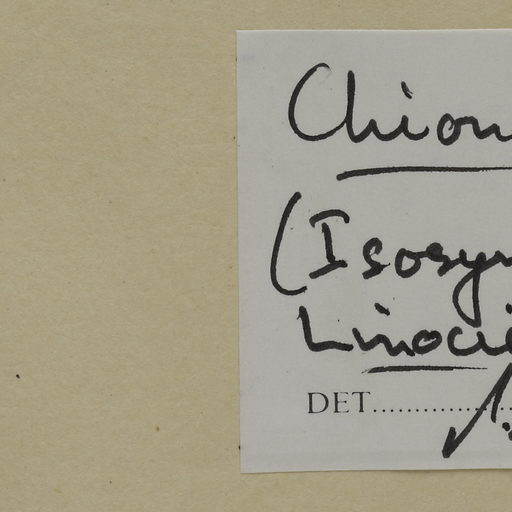 Chion
(Isosyn
Linocie
DET..................